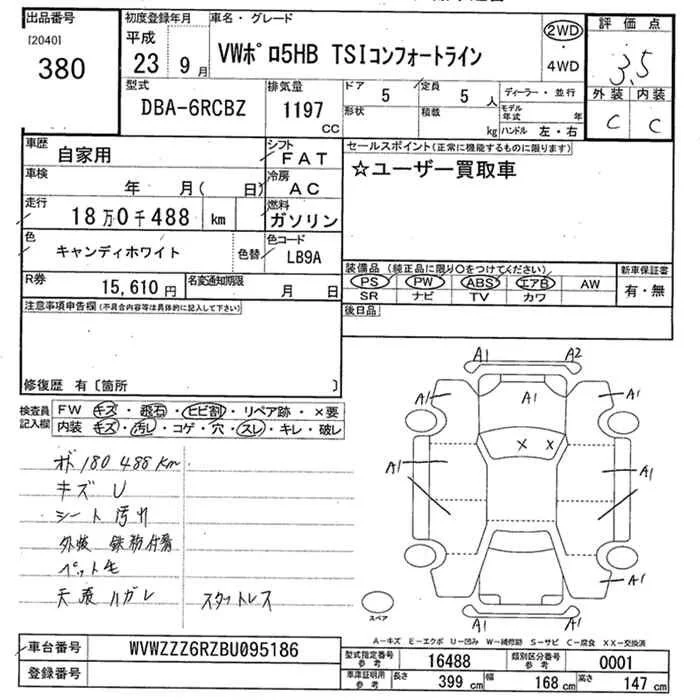 出品番号
[2040]
380
初度登録年月
平成
23 9月
車名・グレード
VWポロ5HB TSIコンフォートライン
2WD
・
4WD
評価点
3.5
外装 内装
C C
型式
DBA-6RCBZ
排気量
1197
CC
ドア
5
定員
5 人
形状
積載
kg
ディーラー・並行
モデル年式 年
ハンドル 左・右
車歴
自家用
シフト
FAT
車検
年 月( 日)
冷房
AC
走行
18万0千488 km
燃料
ガソリン
色
キャンディホワイト
色替
色コード
LB9A
R券
15,610円
名変通知期限
月 日
セールスポイント(正常に機能するものに限ります)
☆ユーザー買取車
装備品 (純正品に限り○をつけてください)
PS PW ABS エアB AW
SR ナビ TV カワ
新車保証書
有・無
後日品
注意事項申告欄(不具合内容等は具体的に記入して下さい)
修復歴 有〔箇所 〕
検査員記入欄
FW キズ・飛石・ヒビ割・リペア跡・×要
内装 キズ・汚レ・コゲ・穴・スレ・キレ・破レ
オド 180488km
キズ U
シート 汚れ
ペット毛
天張ハガレ スタットレス
A1 A2
A1 A1 A1
X X
A1 A1
A1 A1
スペア
A-キズ E-エクボ U-凹み W-補修跡 S-サビ C-腐食 XX-交換済
車台番号
WVWZZZ6RZBU095186
登録番号
型式指定番号 参考
16488
類別区分番号 参考
0001
車庫証明用 参考
長さ 399 cm
幅 168 cm
高さ 147 cm